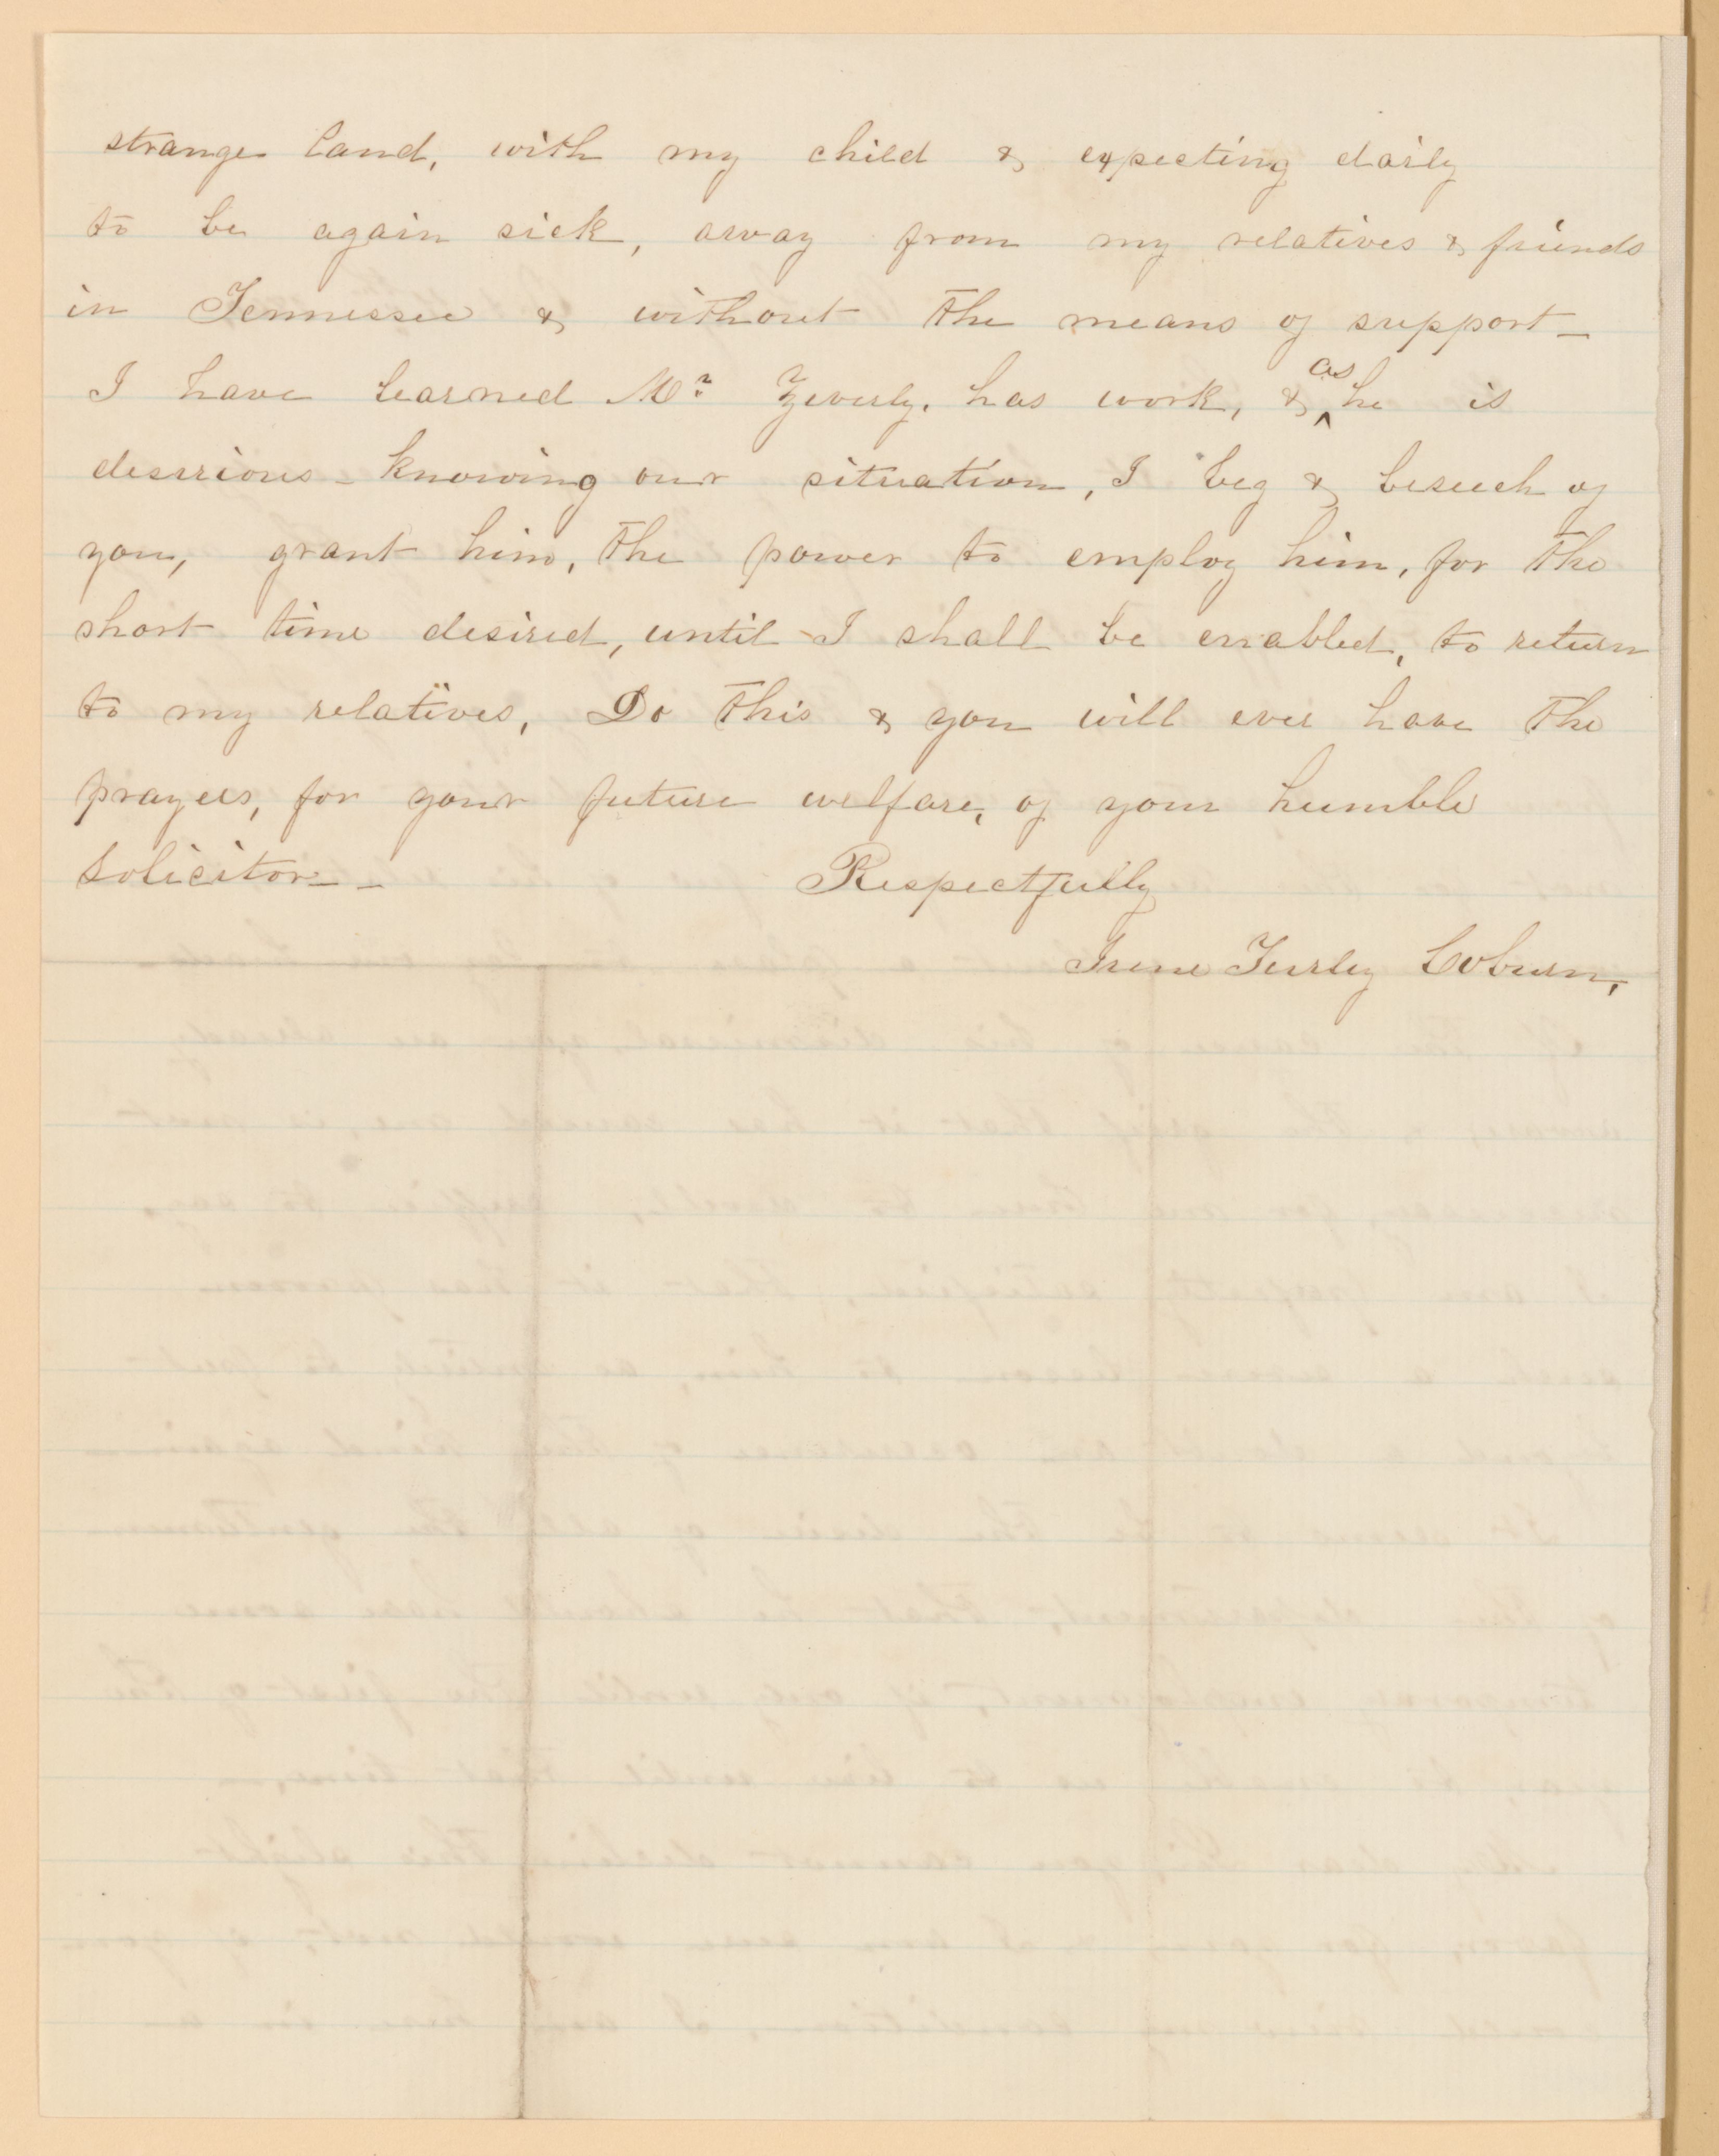 strange land, with my child & expecting daily
to be again sick, away from my relatives & friends
in Tennessee & without the means of support_
I have learned Mr. Zeverly. has work, & as he is
desirious_ knowing our situation, I beg & beseech of
you, grant him, the power to employ him, for the
short time desired, until I shall be enabled, to return
to my relatives, Do this & you will ever have the
prayers, for your future welfare, of your humble
solicitor_ _ Respectfully
Irene Turley Coburn,